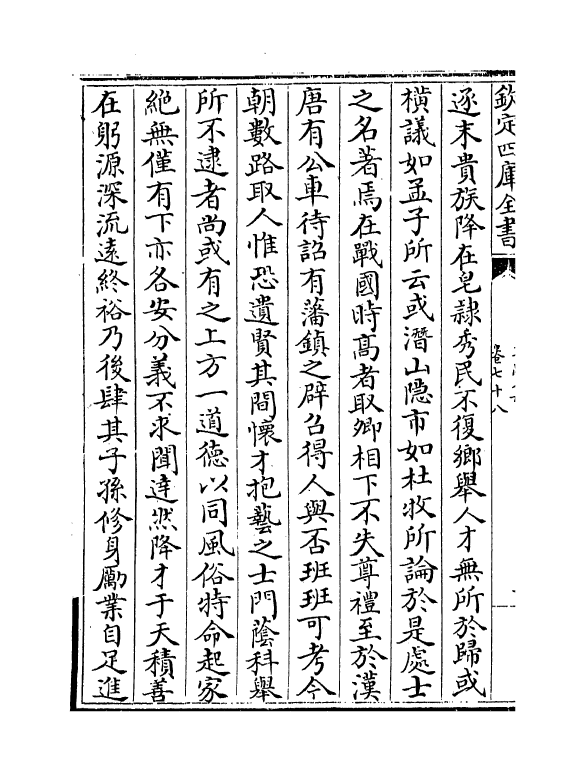 欽定四庫全書
卷七十八
逐末貴族降在皂隷秀民不復鄉舉人才無所於歸或
橫議如孟子所云或潛山隱市如杜牧所論於是處士
之名著焉在戰國時髙者取卿相下不失尊禮至於漢
唐有公車待詔有藩鎮之辟召得人與否班班可考今
朝數路取人惟恐遺賢其間懷才抱藝之士門蔭科舉
所不逮者尚或有之上方一道德以同風俗特命起家
絶無僅有下亦各安分義不求聞達然降才于天積善
在躬源深流遠終裕乃後肆其子孫修身勵業自足進